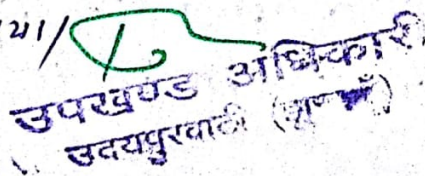 या/
उपखण्ड अधिकारी
उदयपुरवाटी (झुन्झुनूँ)